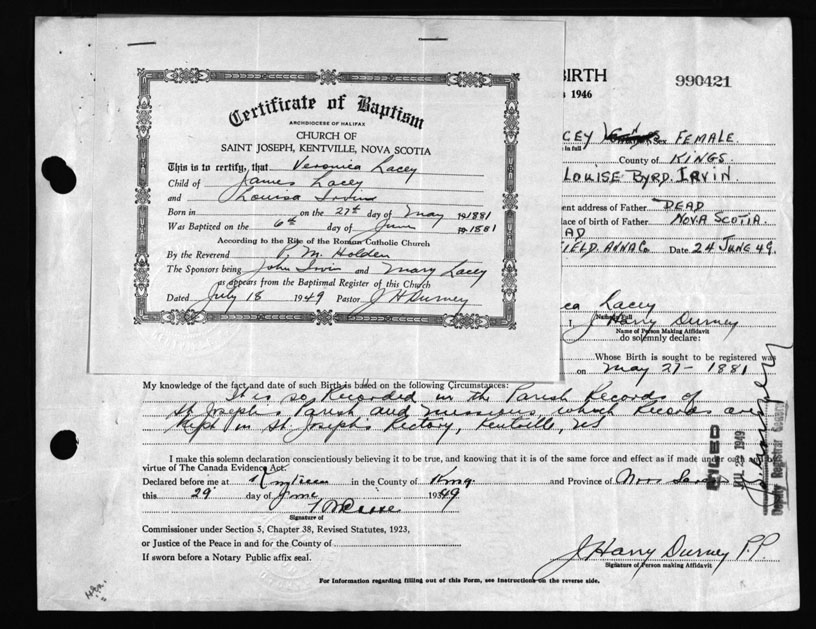 Certificate of Baptism
ARCHDIOCESE OF HALIFAX
CHURCH OF
SAINT JOSEPH, KENTVILLE, NOVA SCOTIA
This is to certify, that Veronica Lacey
Child of James Lacey
and Louisa Irvin
Born in on the 27th day of May 1881
Was Baptized on the 6th day of June 1881
According to the Rite of the Roman Catholic Church
By the Reverend M. Holden
The Sponsors being John Irvin and Mary Lacey
as appears from the Baptismal Register of this Church
Dated July 18 1949 Pastor J H Durney
BIRTH
1946
990421
CEY Sex FEMALE.
in full
County of KINGS.
LOUISE BYRD. IRVIN.
ent address of Father DEAD
lace of birth of Father NOVA SCOTIA.
AD
FIELD. ANNA Co. Date 24 JUNE 49.
ca Lacey
Name in Full
I, J Harry Durney
Name of Person Making Affidavit
do solemnly declare:
Whose Birth is sought to be registered was
on May 27 - 1881
My knowledge of the fact and date of such Birth is based on the following Circumstances:
It is so Recorded in the Parish Records of
St Joseph's Parish and missions, which Records are
Kept in St. Joseph's Rectory, Kentville, NS
I make this solemn declaration conscientiously believing it to be true, and knowing that it is of the same force and effect as if made under oath
virtue of The Canada Evidence Act.
Declared before me at Kentville in the County of Kings and Province of Nova Scotia
this 29 day of June 1949
Signature of
Commissioner under Section 5, Chapter 38, Revised Statutes, 1923,
or Justice of the Peace in and for the County of
If sworn before a Notary Public affix seal.
J Harry Durney P.P.
Signature of Person making Affidavit
For Information regarding filling out of this Form, see Instructions on the reverse side.
FILED
JUL 22 1949
Deputy Registrar General